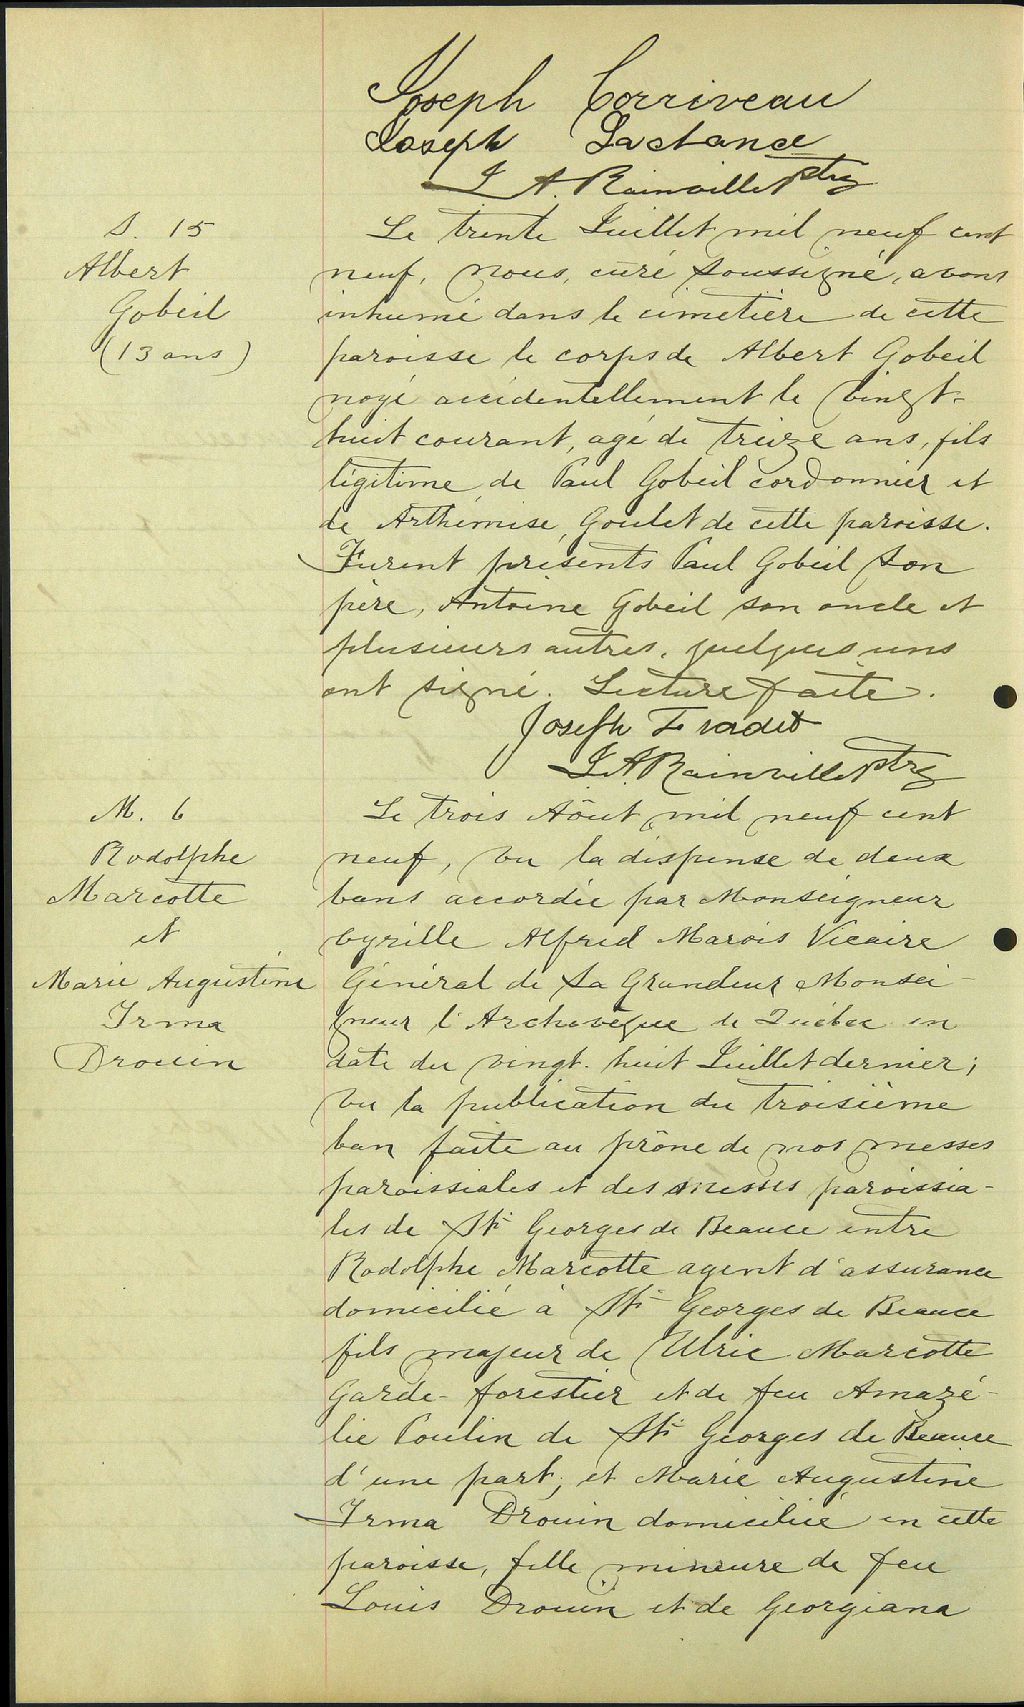 Joseph Corriveau
Joseph Lactance
J A. Rainville Ptre
S. 15
Albert
Gobeil
(13 ans)
Le trente Juillet mil neuf cent
neuf, nous, curé soussigné, avons
inhumé dans le cimetière de cette
paroisse le corps de Albert Gobeil
noyé accidentellement le vingt-
huit courant, agé de treize ans, fils
légitime de Paul Gobeil cordonnier et
de Arthémise Goulet de cette paroisse.
Furent présents Paul Gobeil son
père, Antoine Gobeil son oncle et
plusieurs autres, quelques uns
ont signé. Lecture faite.
Joseph Fradet
J. A. Rainville Ptre
M. 6
Rodolphe
Marcotte
et
Marie Augustine
Irma
Drouin
Le trois Aôut mil neuf cent
neuf, vu la dispense de deux
bans accordée par Monseigneur
Cyrille Alfred Marois Vicaire
Général de Sa Grandeur Monsei-
gneur l'Archevêque de Québec en
date du vingt-huit Juillet dernier;
vu la publication du troisième
ban faite au prône de nos messes
paroissiales et des messes paroissia-
les de St Georges de Beauce entre
Rodolphe Marcotte agent d'assurance
domicilié à St Georges de Beauce
fils majeur de Ulric Marcotte
Garde-forestier et de feu Amazé-
lie Poulin de St Georges de Beauce
d'une part; et Marie Augustine
Irma Drouin domiciliée en cette
paroisse, fille mineure de feu
Louis Drouin et de Georgiana